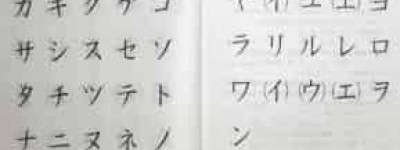 カ キ ク ケ コ
サ シ ス セ ソ
タ チ ツ テ ト
ナ ニ ヌ ネ ノ
ヤ (イ) ユ (エ) ヨ
ラ リ ル レ ロ
ワ (イ) (ウ) (エ) ヲ
ン